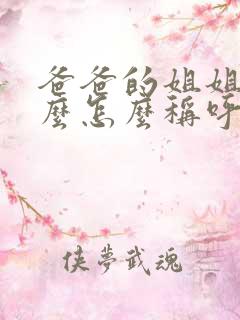 爸爸的姐姐
麼怎麼稱呼
侠夢武魂